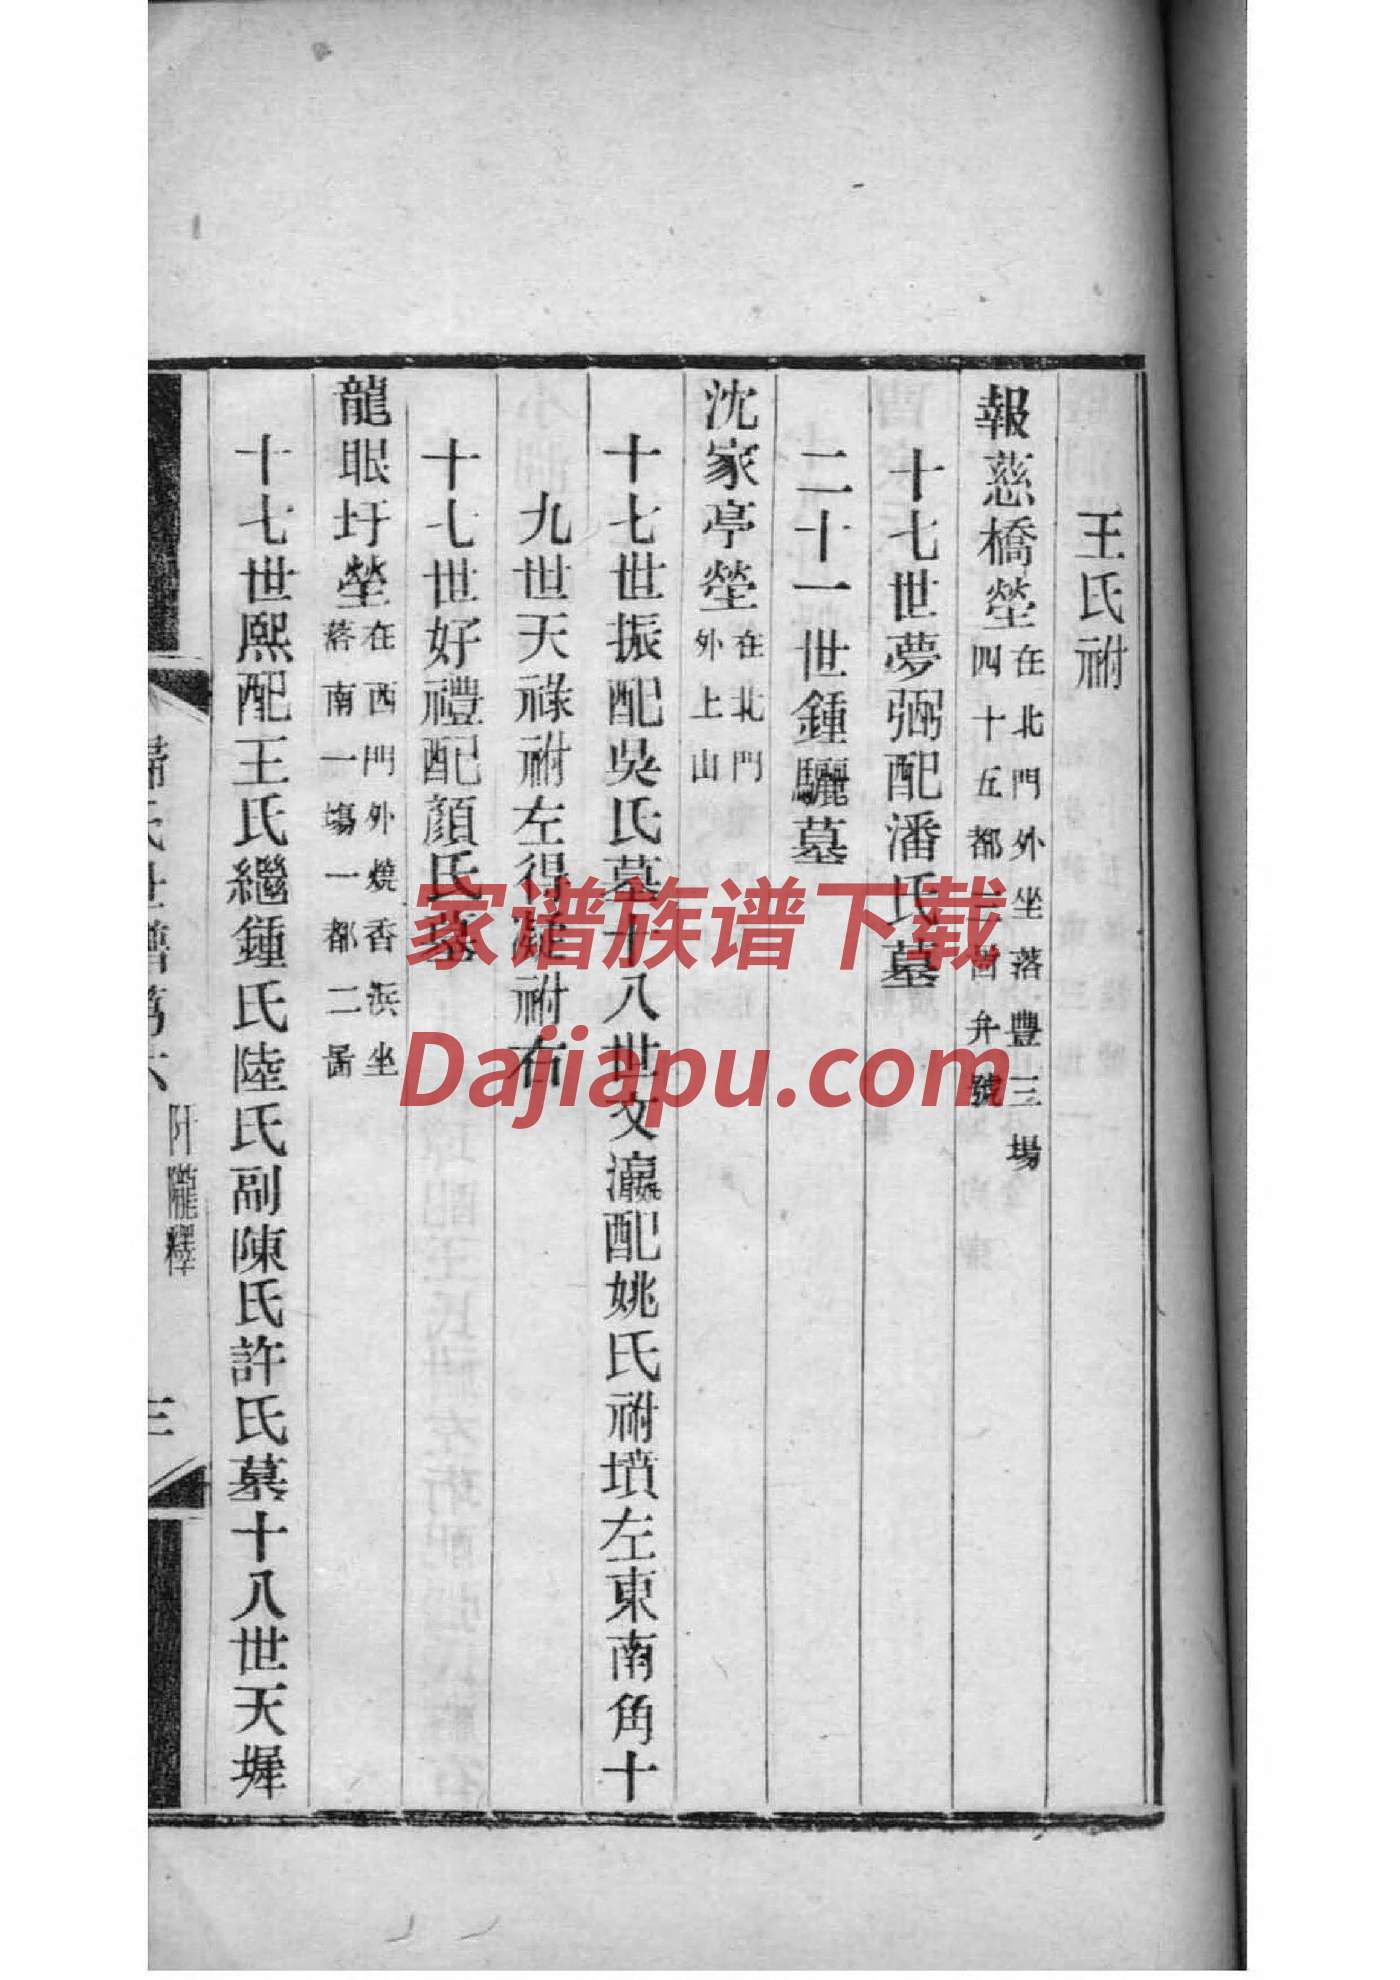 王氏祔
報慈橋塋在北門外坐落豐三場
四十五都二啚弁號
十七世夢弼配潘氏墓
二十一世鍾驪墓
沈家亭塋在北門
外上山
十七世振配吳氏墓十八世文瀛配姚氏祔墳左東南角十
九世天祿祔左得凝祔右
十七世好禮配顏氏墓
龍眠圩塋在西門外燒香浜坐
落南一塲一都二啚
十七世熙配王氏繼鍾氏陸氏副陳氏許氏墓十八世天墀
歸氏世譜
附隴釋
三
家谱族谱下载
Dajiapu.com